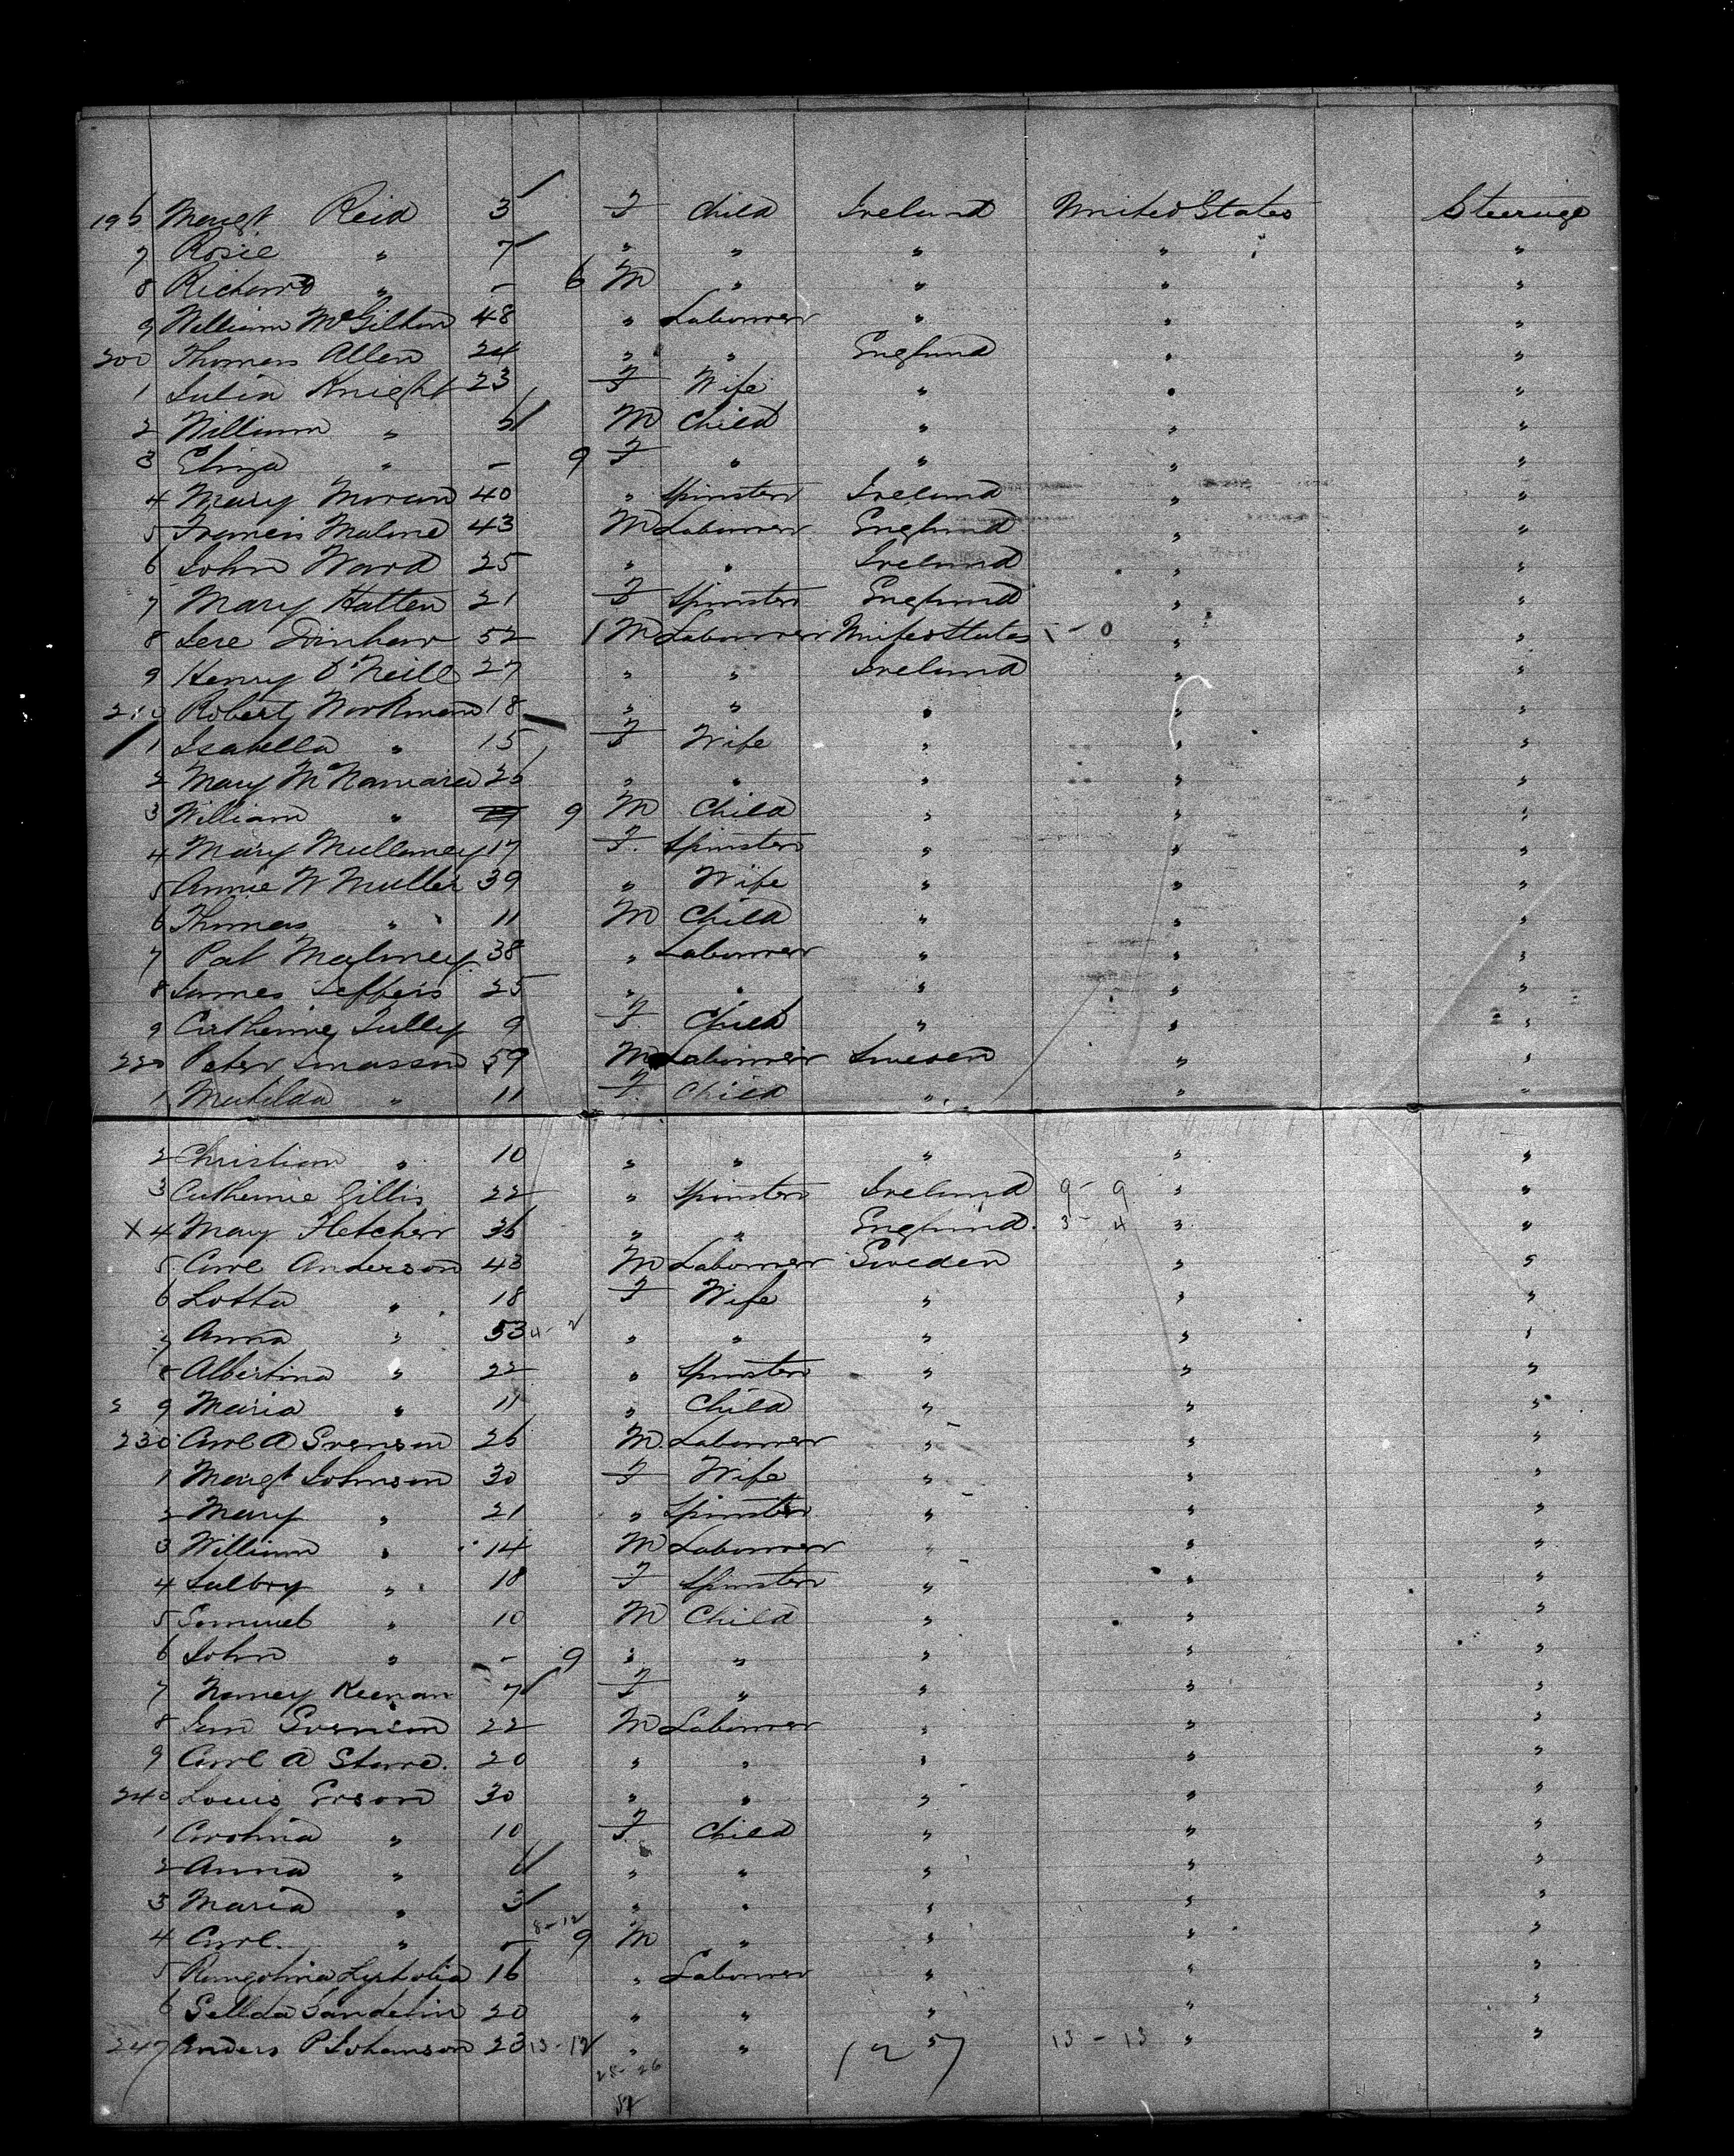 196 Margt Reid 3 F Child Ireland United States Steerage
7 Rosie " 7 " " " " "
8 Richard " - 6 M " " " "
9 William McGilton 48 " Labourer " " "
200 Thomas Allen 24 " " England " "
1 Julia Knight 23 F Wife " " "
2 William " 5 M Child " " "
3 Eliza " - 9 F " " " "
4 Mary Moran 40 " Spinster Ireland " "
5 Francis Malone 43 M Labourer England " "
6 John Ward 25 " " Ireland " "
7 Mary Hatten 21 F Spinster England " "
8 Jere 52 1 M Labourer United States - 0 " "
9 Henry O'Neill 27 " " Ireland " "
210 Robert Workman 18 " " " " "
1 Isabella " 15 F Wife " " "
2 Mary McNamara 25 " " " " "
3 William " 9 M Child " " "
4 Mary Mullaney 17 F. Spinster " " "
5 Annie W Muller 39 " Wife " " "
6 Thomas " 11 M Child " " "
7 Pat Maloney 38 " Labourer " " "
8 James Jeffers 25 " " " " "
9 Catherine Tully 9 F. Child " " "
220 Peter 59 M Labourer Sweden " "
1 Matilda " 11 F. Child " " "
2 Christian " 10 " " " " "
3 Catherine Gillis 22 " Spinster Ireland 9 - 9 " "
X 4 Mary Fletcher 36 " " England 3 - 4 " "
5 Carl Anderson 43 M Labourer Sweden " "
6 Lotta " 18 F Wife " " "
7 Anna " 53 " " " " "
8 Albertina " 22 " Spinster " " "
9 Maria " 11 " Child " " "
230 Carl A Svenson 26 M Labourer " " "
1 Margt Johnson 30 F Wife " " "
2 Mary " 21 " Spinster " " "
3 William " 14 M Labourer " " "
4 " 18 F Spinster " " "
5 Samuel " 10 M Child " " "
6 John " - 9 " " " " "
7 Nancy Keenan 7 F " " " "
8 Svenson 22 M Labourer " " "
9 Carl A Starre. 20 " " " " "
240 Louis Erson 30 " " " " "
1 Carolina " 10 F Child " " "
2 Anna " 6 " " " " "
3 Maria " 3 " " " " "
4 Carl " - 8-12 9 M " " " "
5 16 " Labourer " " "
6 Sandelin 20 " " " " "
247 Anders P Johanson 23 13-12 " " " 13 - 13 " "
127
25-26